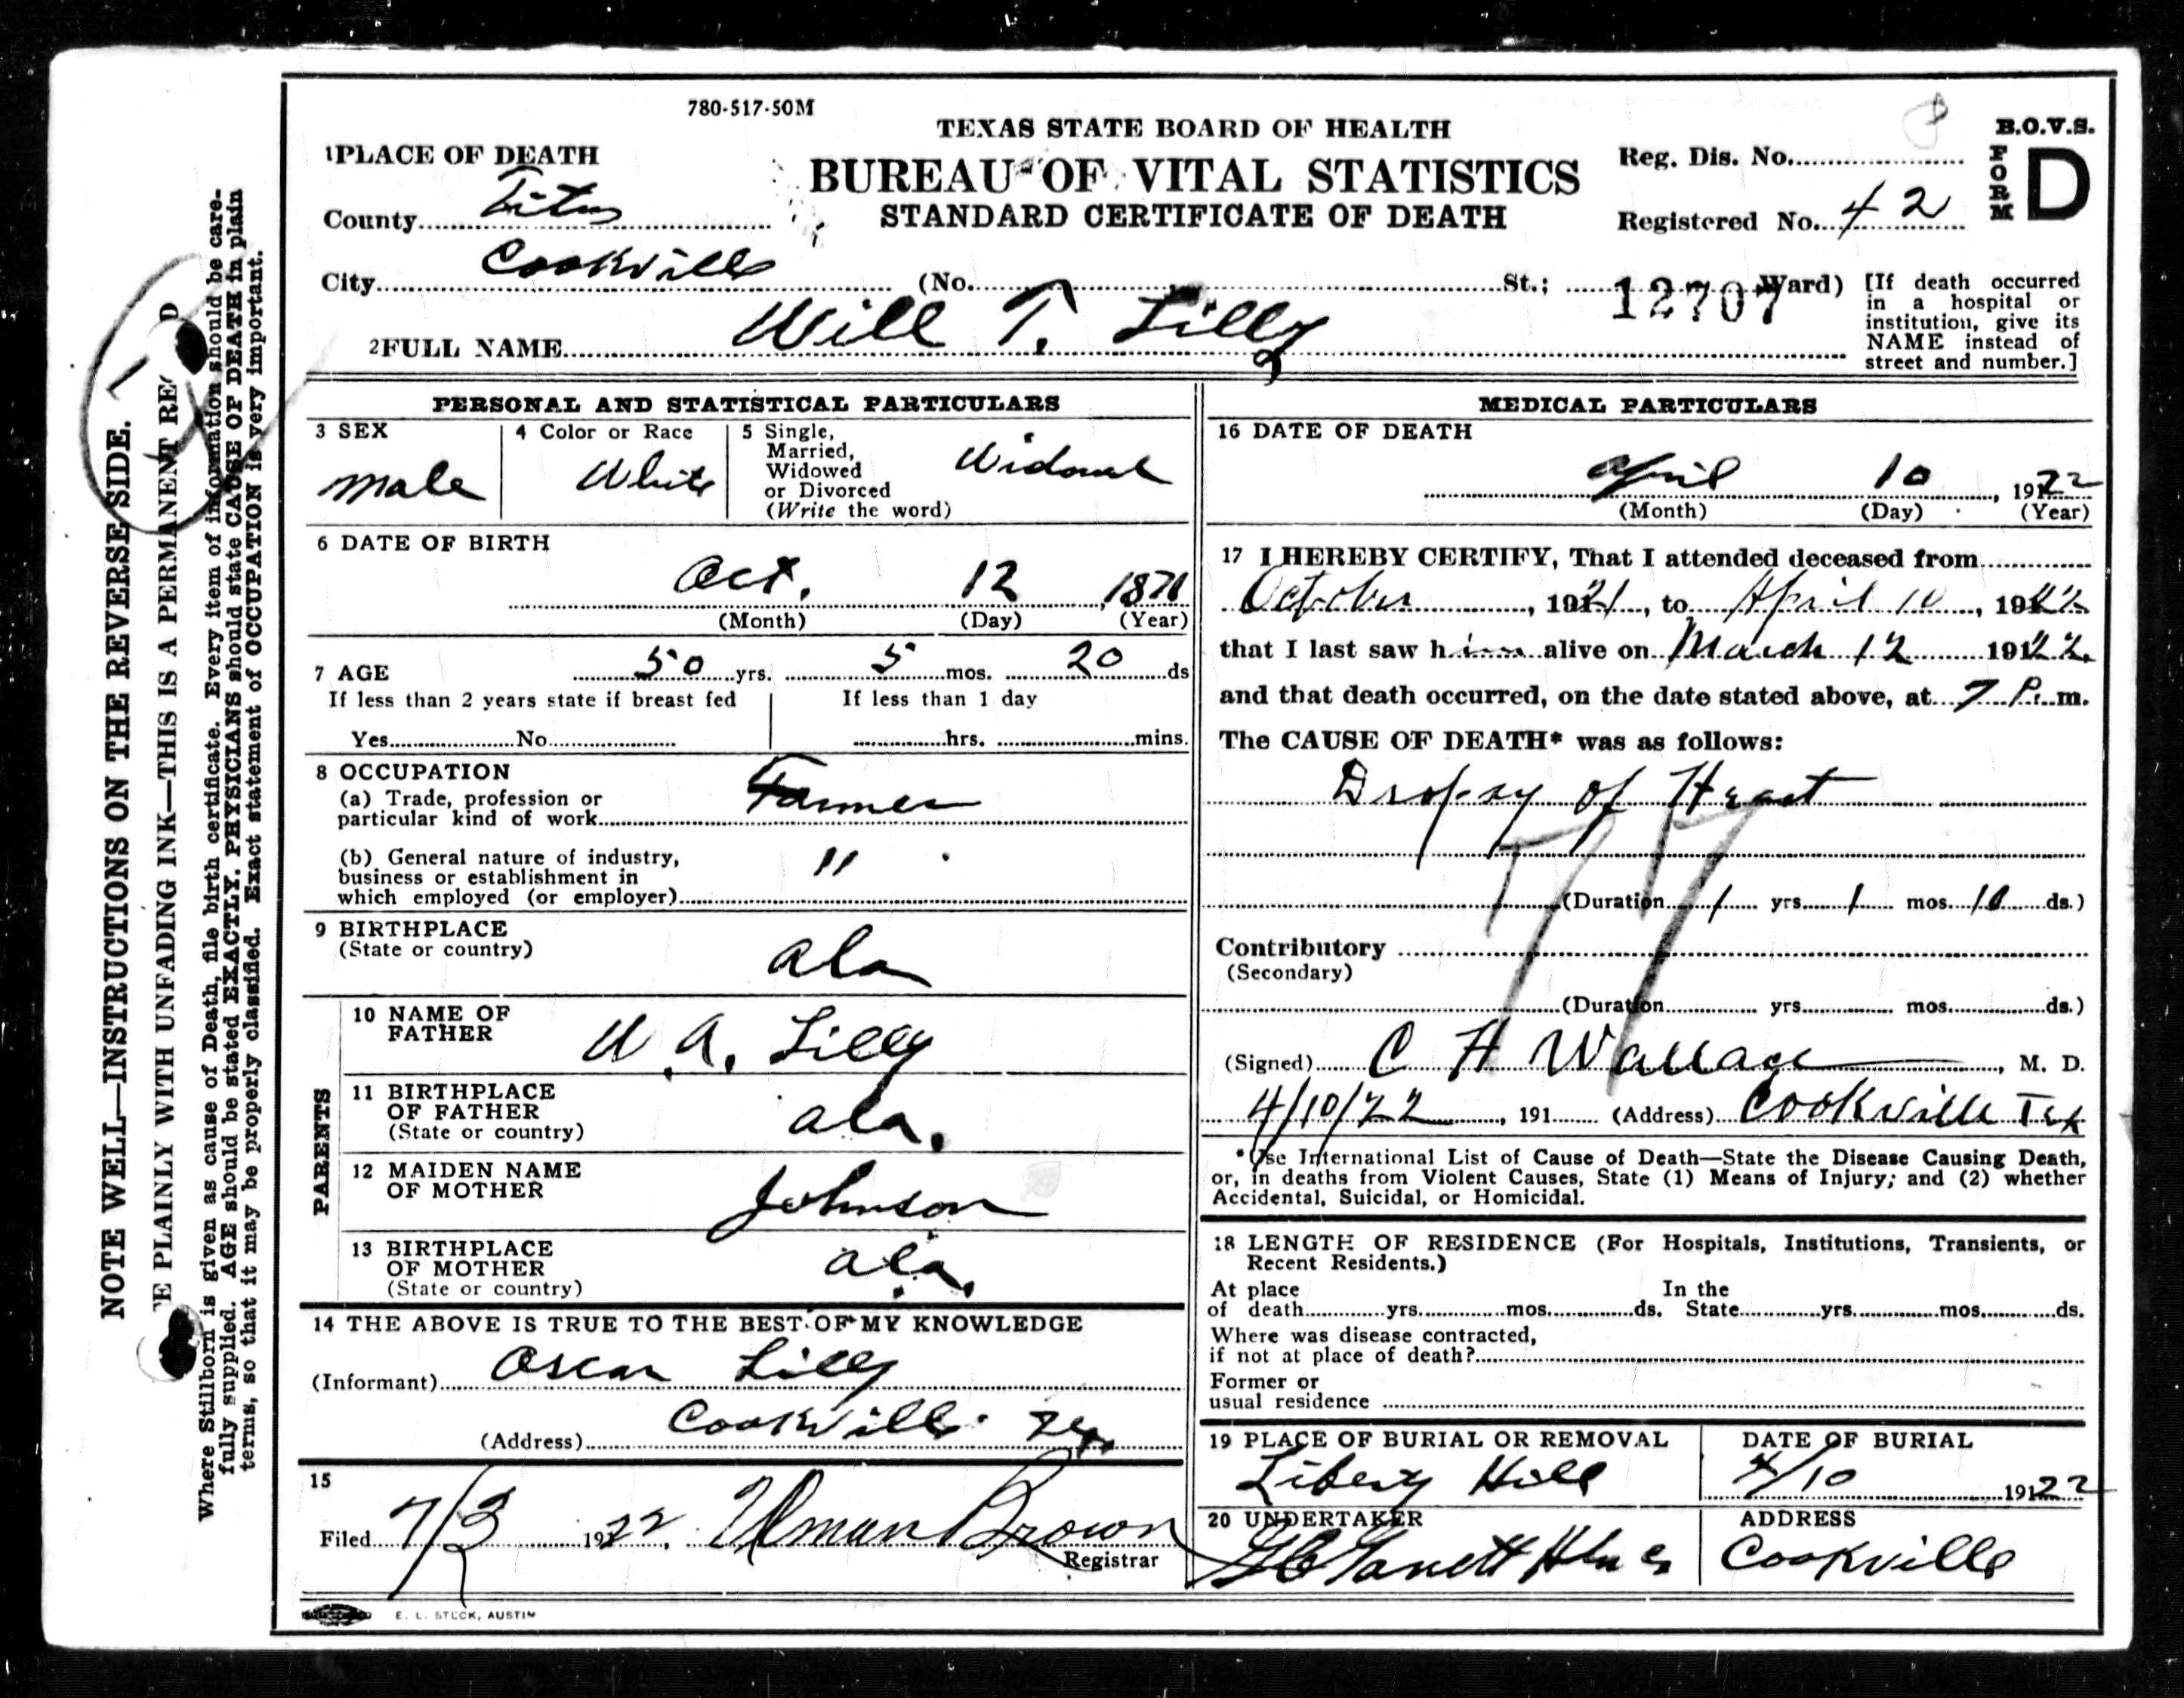 780-517-50M
TEXAS STATE BOARD OF HEALTH
BUREAU OF VITAL STATISTICS
STANDARD CERTIFICATE OF DEATH
B.O.V.S.
FORM D
Reg. Dis. No.
Registered No. 42
1 PLACE OF DEATH
County Titus
City Cookville (No. St.; Ward)
12707
[If death occurred
in a hospital or
institution, give its
NAME instead of
street and number.]
2 FULL NAME Will T. Lilly
PERSONAL AND STATISTICAL PARTICULARS
3 SEX
male
4 Color or Race
White
5 Single,
Married,
Widowed
or Divorced
(Write the word)
Widowed
6 DATE OF BIRTH
Oct. 12, 1871
(Month) (Day) (Year)
7 AGE 50 yrs. 5 mos. 20 ds
If less than 2 years state if breast fed
Yes No
If less than 1 day
hrs. mins.
8 OCCUPATION
(a) Trade, profession or
particular kind of work Farmer
(b) General nature of industry,
business or establishment in
which employed (or employer) "
9 BIRTHPLACE
(State or country)
Ala
PARENTS
10 NAME OF
FATHER
W. A. Lilly
11 BIRTHPLACE
OF FATHER
(State or country)
Ala.
12 MAIDEN NAME
OF MOTHER
Johnson
13 BIRTHPLACE
OF MOTHER
(State or country)
Ala.
14 THE ABOVE IS TRUE TO THE BEST OF MY KNOWLEDGE
(Informant) Oscar Lilly
(Address) Cookville Tex.
15
Filed 7/3 1922. Ulman Brown
Registrar
E. L. STECK, AUSTIN
MEDICAL PARTICULARS
16 DATE OF DEATH
April 10, 1922
(Month) (Day) (Year)
17 I HEREBY CERTIFY, That I attended deceased from
October, 1921, to April 10, 1922
that I last saw him alive on March 12 1922.
and that death occurred, on the date stated above, at 7 P. m.
The CAUSE OF DEATH* was as follows:
Dropsy of Heart
(Duration 1 yrs. 1 mos. 10 ds.)
Contributory
(Secondary)
(Duration yrs. mos. ds.)
(Signed) C H Wallace, M. D.
4/10/22, 191 (Address) Cookville Tex
*Use International List of Cause of Death—State the Disease Causing Death,
or, in deaths from Violent Causes, State (1) Means of Injury; and (2) whether
Accidental, Suicidal, or Homicidal.
18 LENGTH OF RESIDENCE (For Hospitals, Institutions, Transients, or
Recent Residents.)
At place
of death yrs. mos. ds.
In the
State yrs. mos. ds.
Where was disease contracted,
if not at place of death?
Former or
usual residence
19 PLACE OF BURIAL OR REMOVAL
Liberty Hill
DATE OF BURIAL
4/10 1922
20 UNDERTAKER
ADDRESS
Cookville
NOTE WELL—INSTRUCTIONS ON THE REVERSE SIDE.
PLAINLY WITH UNFADING INK—THIS IS A PERMANENT RE
Where Stillborn is given as cause of Death, file birth certificate. Every item of information should be care-
fully supplied. AGE should be stated EXACTLY. PHYSICIANS should state CAUSE OF DEATH in plain
terms, so that it may be properly classified. Exact statement of OCCUPATION is very important.